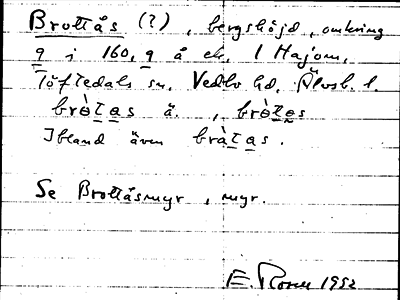 Brottås (?), bergshöjd, omkring
q i 160, q å ek. 1 Hajom,
Töftedals sn. Vedbo hd. Älvsb. l.
brò̀tas ä. , bròtos
Ibland även bràtas.
Se Brottåsmyr, myr.
E. Rosen 1952